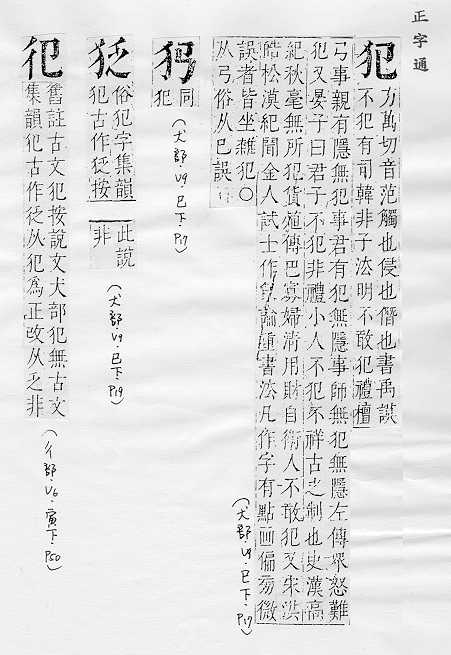 正字通
犯
力萬切音范觸也侵也僭也書禹謨
不犯有司韓非子法明不敢犯禮檀
弓事親有隱無犯事君有犯無隱事師無犯無隱左傳眾怒難
犯又晏子曰君子不犯非禮小人不犯不祥古之制也史漢高
紀秋毫無所犯貨殖傳巴寡婦清用財自衛人不敢犯又宋洪
皓松漠紀聞金人試士作論重書法凡作字有點画偏旁微
誤者皆坐雜犯○
从弓俗从巳誤
(犬部.V9.巳下.P17)
同
犯
(犬部.V9.巳下.P17)
俗犯字集韻
犯古作按
此說
非
(犬部.V9.巳下.P19)
舊註古文犯按說文犬部犯無古文
集韻犯古作从犯為正改从乏非
(彳部.V6.寅下.P50)